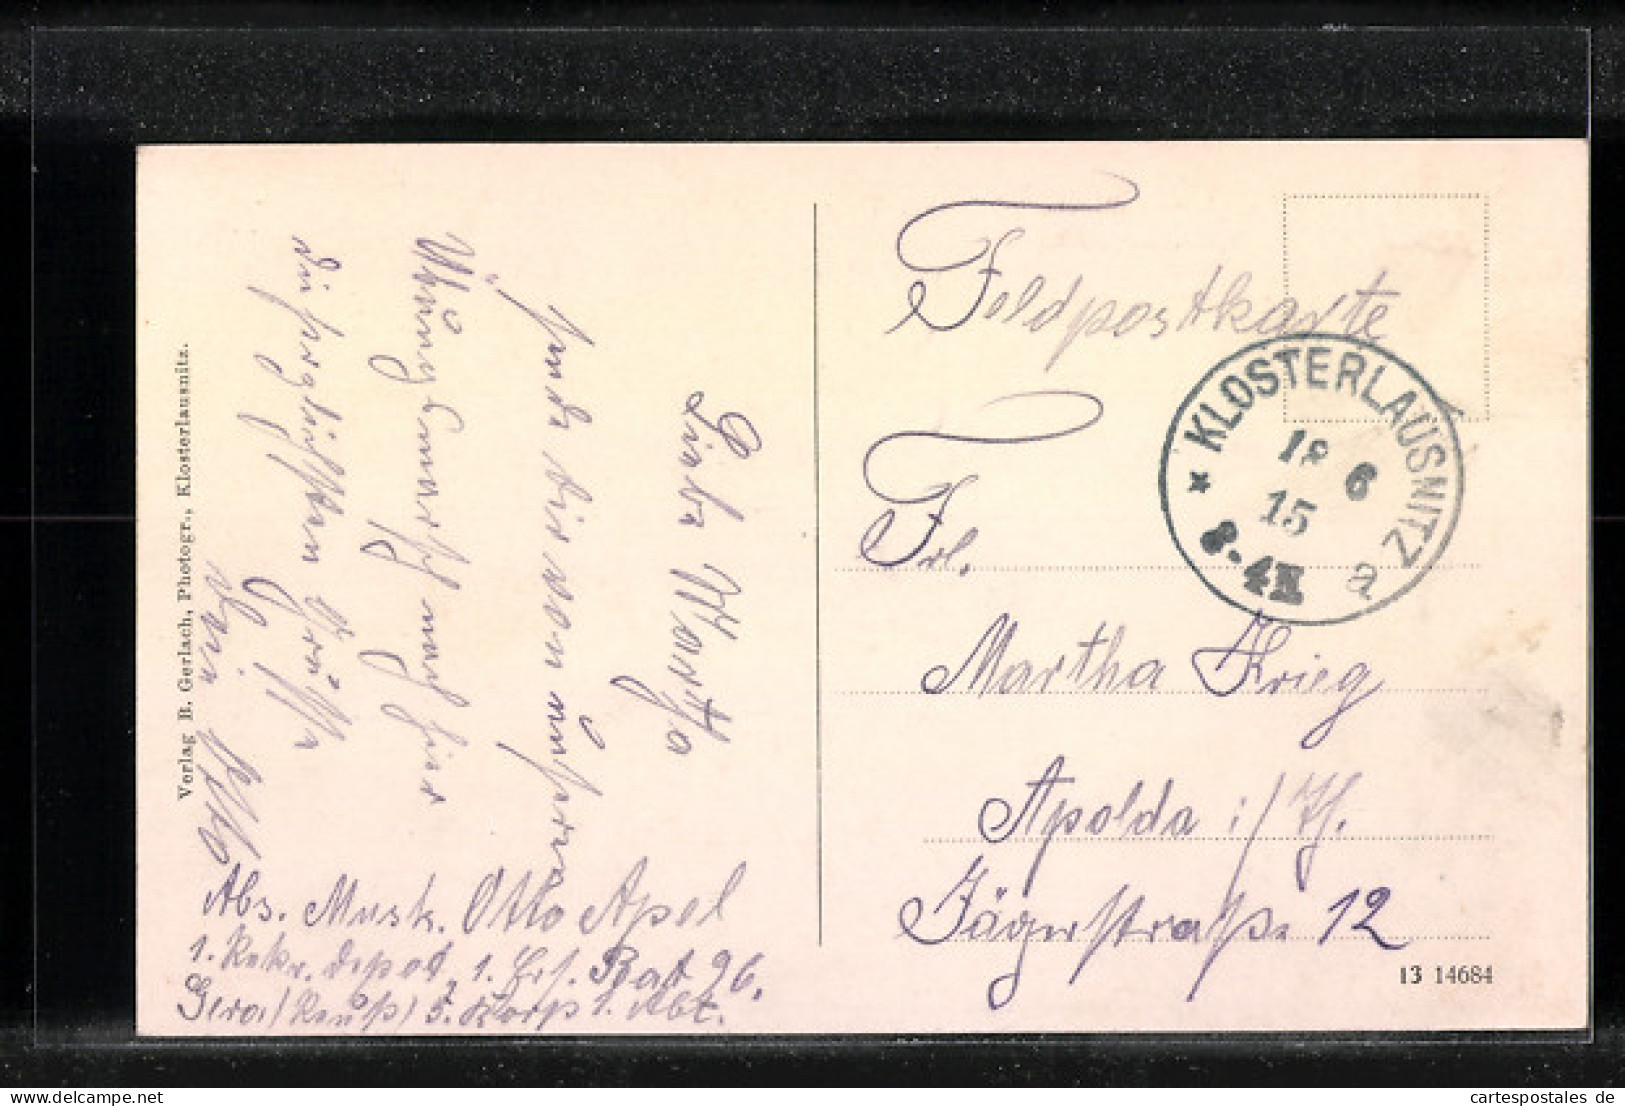 Verlag B. Gerlach, Photogr., Klosterlausnitz.
Liebe Martha
sende dir von unserer
Übung Marsch nach hier
die herzlichsten Grüße
dein Otto
Abs. Musk. Otto Apel
1. Rekr. Depot, 1. Ers. Bat 96.
Gera (Reuß) 5. Korp 1. Abt.
Feldpostkarte
KLOSTERLAUSNITZ
18 6
15
8-4N
a
Frl.
Martha Krieg
Apolda i/Th.
Jägerstraße 12
13 14684
cartespostales de